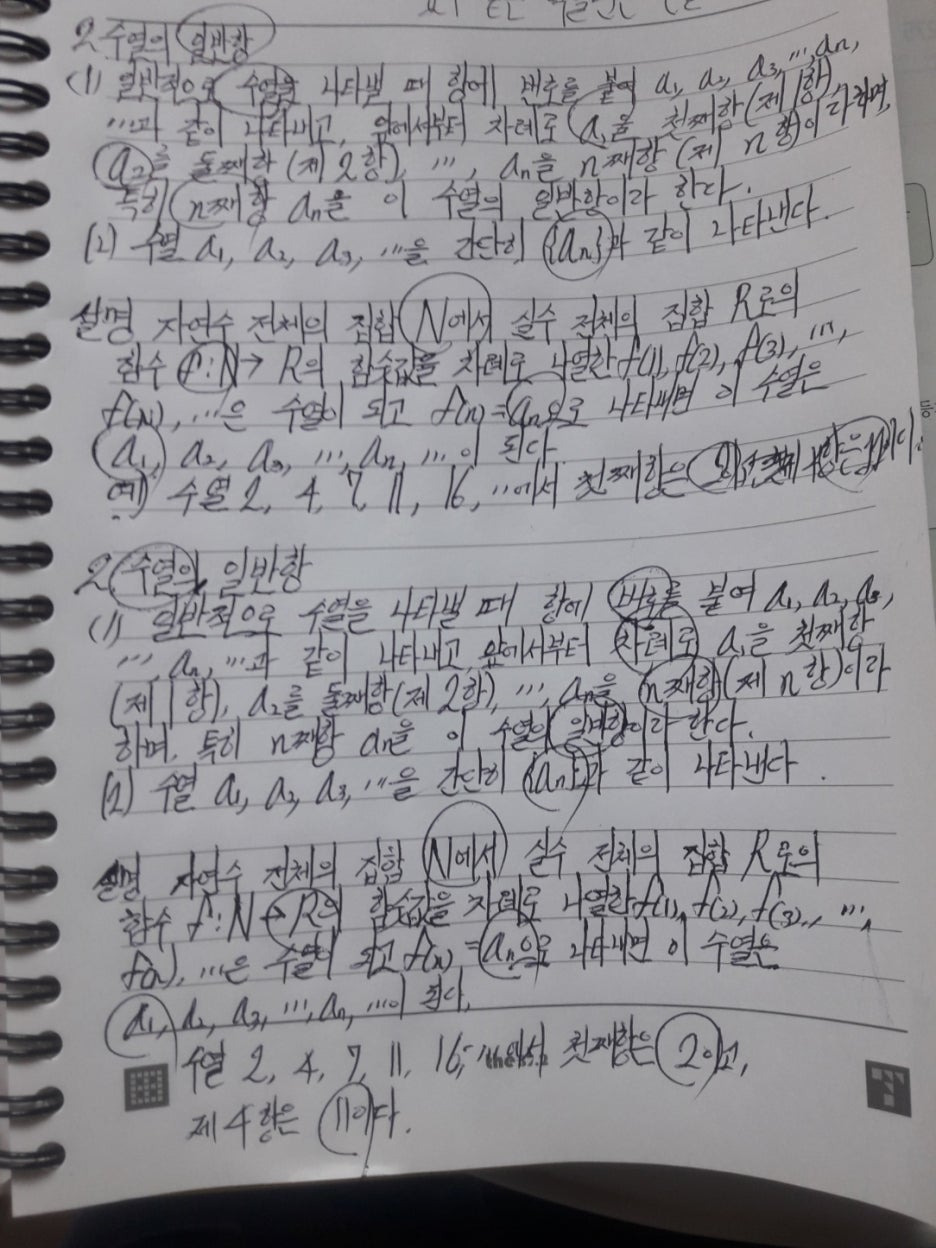 2 수열의 일반항
(1) 일반적으로 수열을 나타낼 때 항에 번호를 붙여 a₁, a₂, a₃, …, aₙ,
…과 같이 나타내고, 앞에서부터 차례로 a₁을 첫째항(제1항),
a₂를 둘째항(제2항), …, aₙ을 n째항(제 n항)이라하며,
특히 n째항 aₙ을 이 수열의 일반항이라 한다.
(2) 수열 a₁, a₂, a₃, …을 간단히 {aₙ}과 같이 나타낸다.
설명 자연수 전체의 집합 N에서 실수 전체의 집합 R로의
함수 f:N→R의 함숫값을 차례로 나열한 f(1), f(2), f(3), …,
f(n), …은 수열이 되고 f(n)=aₙ으로 나타내면 이 수열은
a₁, a₂, a₃, …, aₙ, …이 된다.
예) 수열 2, 4, 7, 11, 16, …에서 첫째항은 2
2 수열의 일반항
(1) 일반적으로 수열을 나타낼 때 항에 번호를 붙여 a₁, a₂, a₃,
…, aₙ, …과 같이 나타내고 앞에서부터 차례로 a₁을 첫째항
(제1항), a₂를 둘째항(제2항), …, aₙ을 n째항(제 n항)이라
하며, 특히 n째항 aₙ을 이 수열의 일반항이라 한다.
(2) 수열 a₁, a₂, a₃, …을 간단히 {aₙ}과 같이 나타낸다.
설명 자연수 전체의 집합 N에서 실수 전체의 집합 R로의
함수 f:N→R의 함숫값을 차례로 나열한 f(1), f(2), f(3), …,
f(n), …은 수열이 되고 f(n)=aₙ으로 나타내면 이 수열은
a₁, a₂, a₃, …, aₙ, …이 된다.
수열 2, 4, 7, 11, 16, …에서 첫째항은 2이고,
제4항은 11이다.